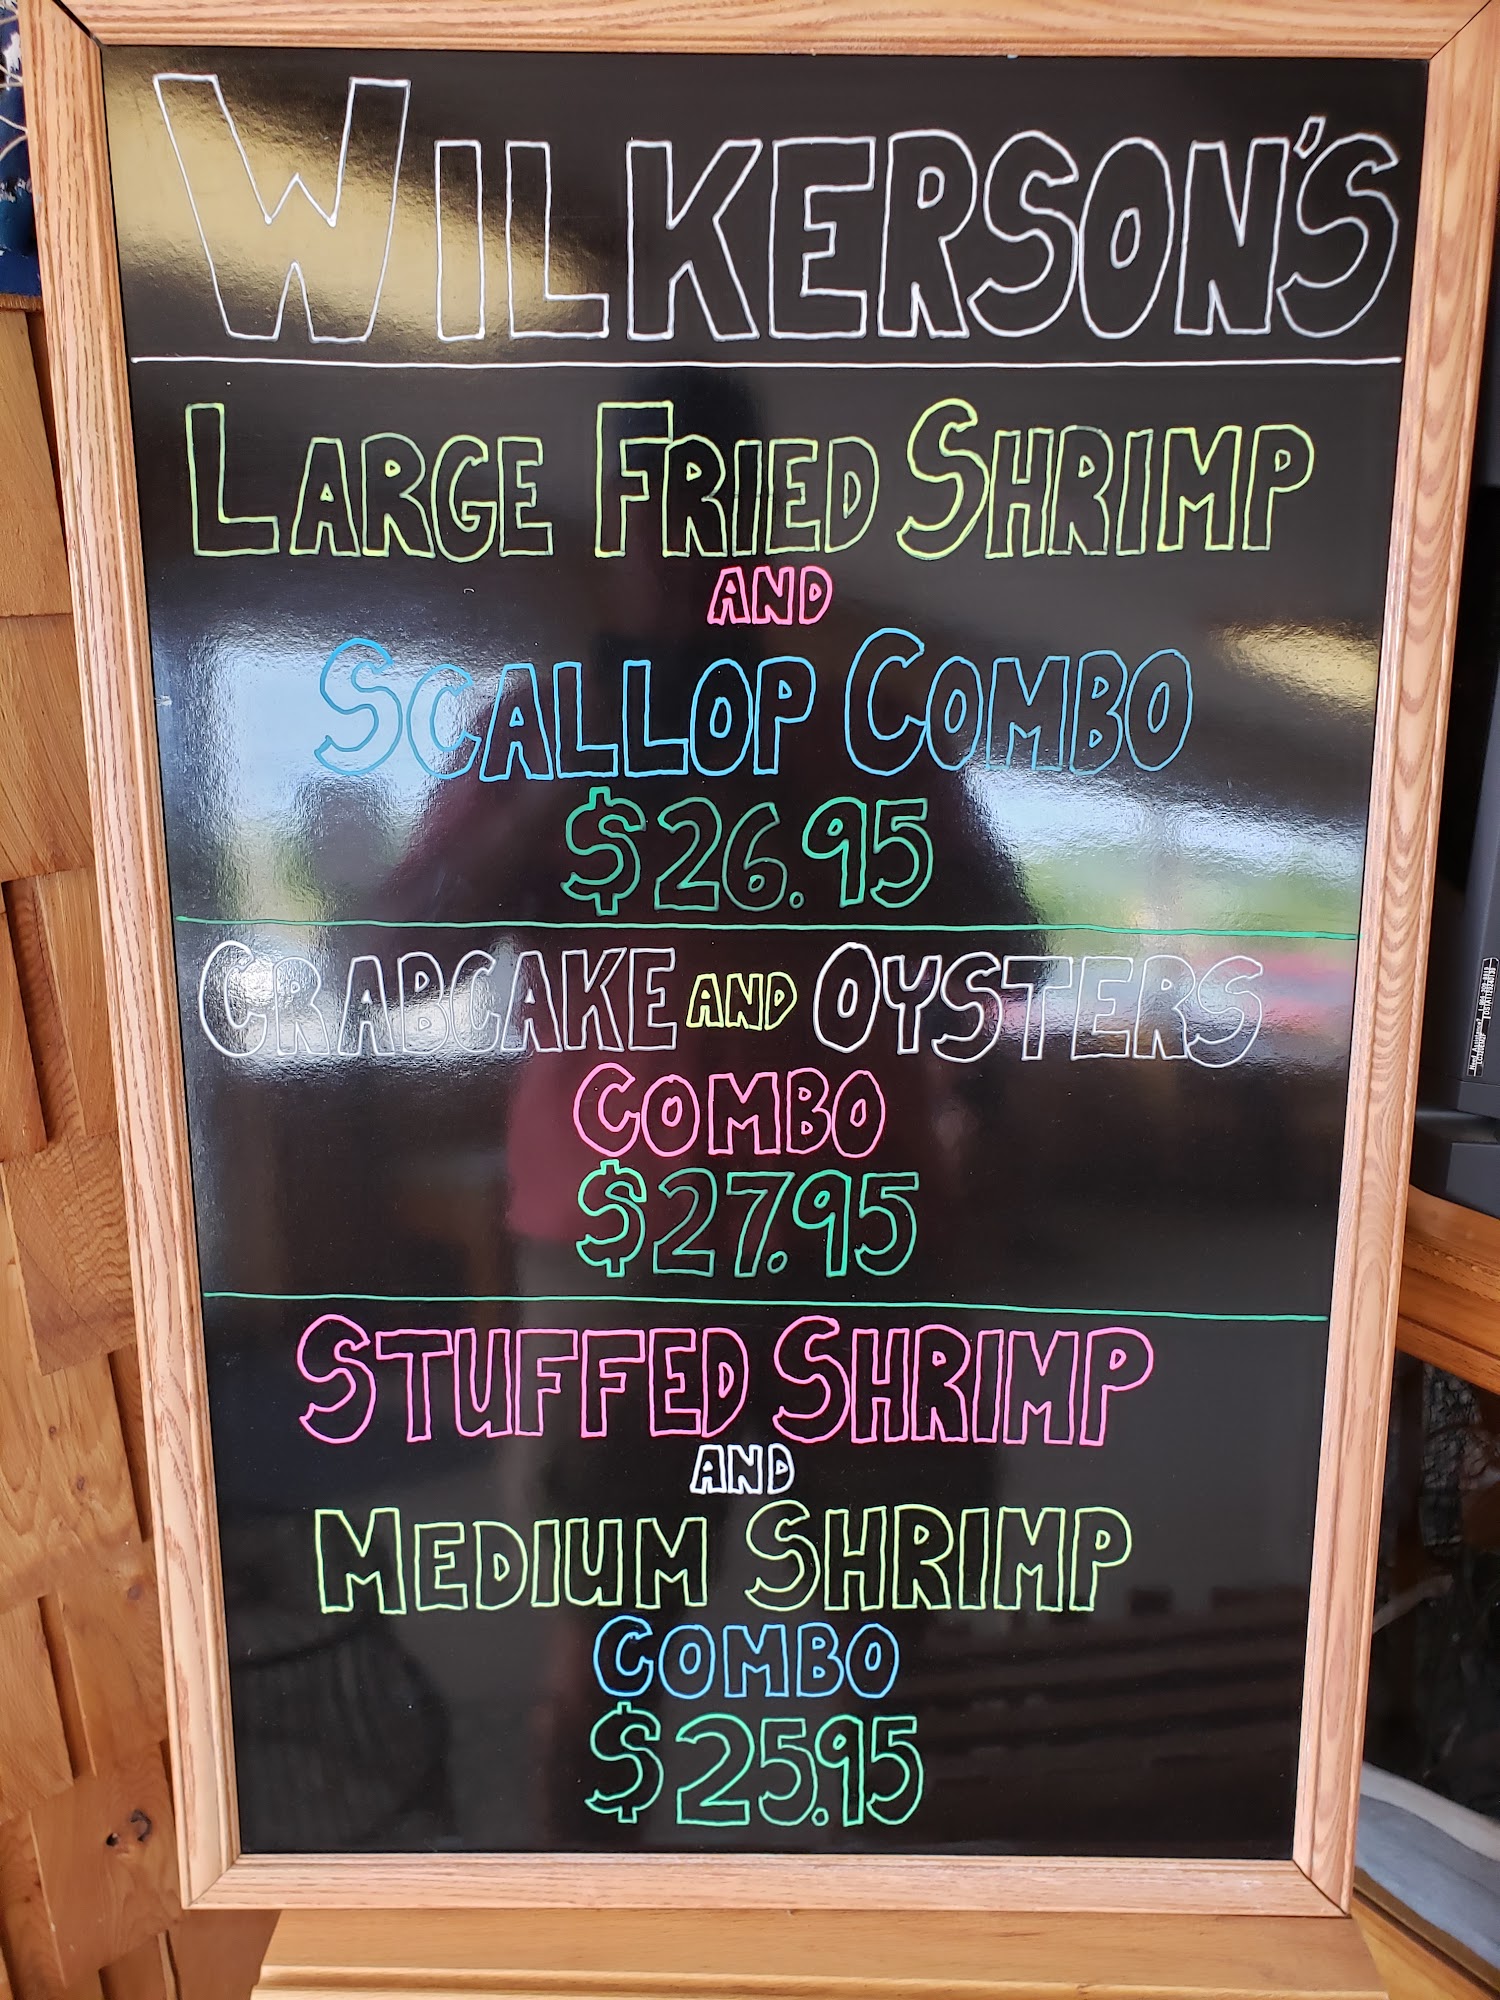 WILKERSON'S
LARGE FRIED SHRIMP
AND
SCALLOP COMBO
$26.95
CRABCAKE AND OYSTERS
COMBO
$27.95
STUFFED SHRIMP
AND
MEDIUM SHRIMP
COMBO
$25.95